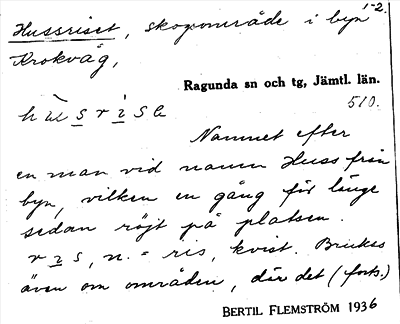 1-2.
Hussriset, skogsområde i byn
Krokvåg,
Ragunda sn och tg, Jämtl. län.
510.
Namnet efter
en man vid namn Huss från
byn, vilken en gång för länge
sedan röjt på platsen.
n. = ris, kvist. Brukas
även om områden, där det (forts.)
BERTIL FLEMSTRÖM 1936